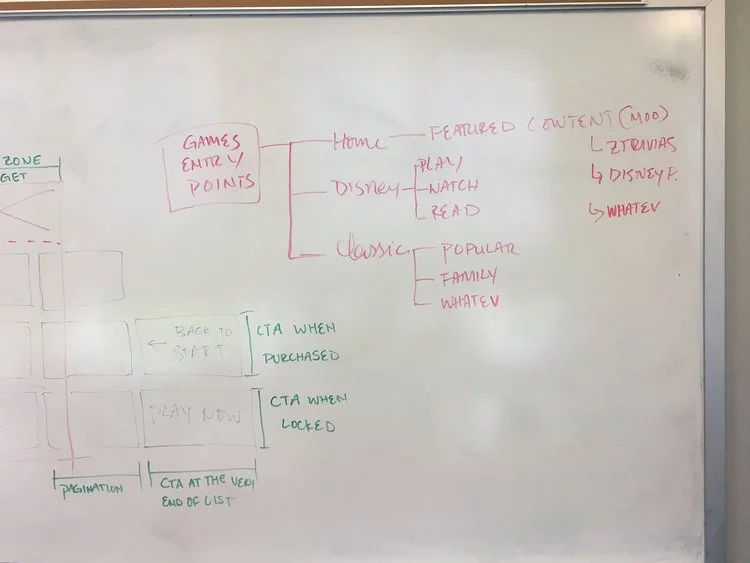 ZONE
GET
GAMES
ENTRY
POINTS
Home
FEATURED CONTENT (MOO)
ZTRIVIAS
DISNEY F.
WHATEV
Disney
PLAY
WATCH
READ
Classic
POPULAR
FAMILY
WHATEV
← BACK TO
START
CTA WHEN
PURCHASED
PLAY NOW
CTA WHEN
LOCKED
PAGINATION
CTA AT THE VERY
END OF LIST